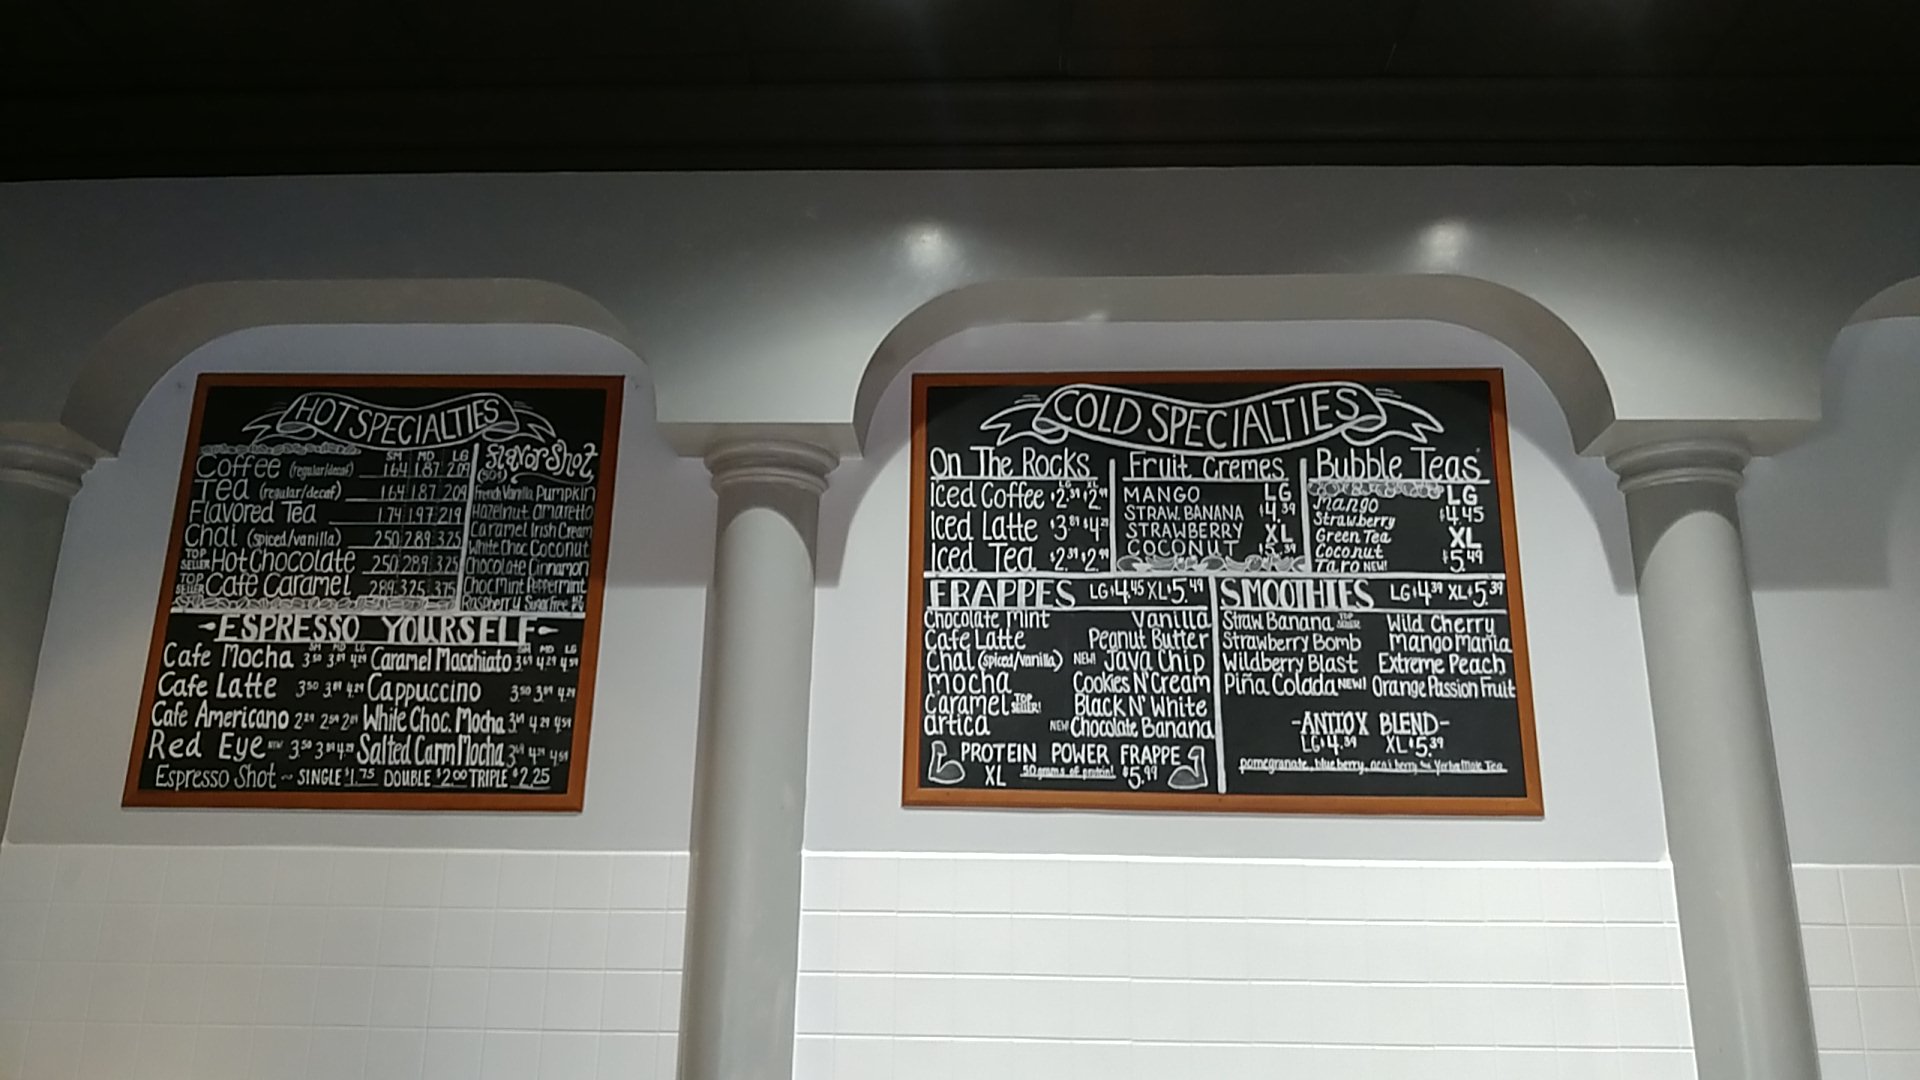 HOT SPECIALTIES
SM MD LG
Coffee (regular/decaf) 1.64 1.87 2.09
Tea (regular/decaf) 1.64 1.87 2.09
Flavored Tea 1.74 1.97 2.19
Chai (spiced/vanilla) 2.50 2.89 3.25
TOP SELLER Hot Chocolate 2.50 2.89 3.25
TOP SELLER Cafe Caramel 2.89 3.25 3.75
Flavor Shot
French Vanilla Pumpkin
Hazelnut Amaretto
Caramel Irish Cream
White Choc Coconut
Chocolate Cinnamon
Choc Mint Peppermint
Raspberry Sugar Free
-ESPRESSO YOURSELF-
SM MD LG SM MD LG
Cafe Mocha 3.50 3.89 4.29 Caramel Macchiato 3.69 4.29 4.59
Cafe Latte 3.50 3.89 4.29 Cappuccino 3.50 3.89 4.29
Cafe Americano 2.29 2.59 2.89 White Choc. Mocha 4.29 4.59
Red Eye NEW 3.50 3.89 4.29 Salted Carm Mocha 3.69 4.29 4.59
Espresso Shot ~ SINGLE $1.75 DOUBLE $2.00 TRIPLE $2.25
COLD SPECIALTIES
On The Rocks
LG XL
Iced Coffee $2.39 $2.99
Iced Latte $3.89 $4.29
Iced Tea $2.39 $2.99
Fruit Cremes
MANGO LG
STRAW. BANANA $4.39
STRAWBERRY XL
COCONUT $5.39
Bubble Teas
LG
Mango $4.45
Strawberry
Green Tea XL
Coconut $5.49
Taro NEW!
FRAPPES LG $4.45 XL $5.49
Chocolate Mint Vanilla
Cafe Latte Peanut Butter
Chai (spiced/vanilla) NEW! Java Chip
Mocha Cookies N' Cream
Caramel TOP SELLER! Black N' White
Artica NEW Chocolate Banana
PROTEIN POWER FRAPPE
XL 50 grams of protein! $5.99
SMOOTHIES LG $4.39 XL $5.39
Straw Banana TOP SELLER Wild Cherry
Strawberry Bomb Mango Mania
Wildberry Blast Extreme Peach
Piña Colada NEW! Orange Passion Fruit
-ANTIOX BLEND-
LG $4.39 XL $5.39
pomegranate, blueberry, acai berry and Yerba Mate Tea